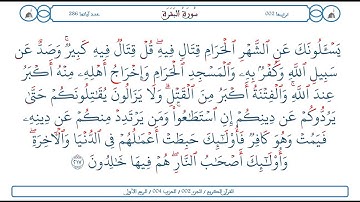 ترتيبها 002 سُورَةُ البَقَرَةِ عدد آياتها 286
يَسْـَٔلُونَكَ عَنِ ٱلشَّهْرِ ٱلْحَرَامِ قِتَالٍ فِيهِ ۖ قُلْ قِتَالٌ فِيهِ كَبِيرٌ ۖ وَصَدٌّ عَن
سَبِيلِ ٱللَّهِ وَكُفْرٌۢ بِهِۦ وَٱلْمَسْجِدِ ٱلْحَرَامِ وَإِخْرَاجُ أَهْلِهِۦ مِنْهُ أَكْبَرُ
عِندَ ٱللَّهِ ۚ وَٱلْفِتْنَةُ أَكْبَرُ مِنَ ٱلْقَتْلِ ۗ وَلَا يَزَالُونَ يُقَٰتِلُونَكُمْ حَتَّىٰ
يَرُدُّوكُمْ عَن دِينِكُمْ إِنِ ٱسْتَطَٰعُوا۟ ۚ وَمَن يَرْتَدِدْ مِنكُمْ عَن دِينِهِۦ
فَيَمُتْ وَهُوَ كَافِرٌ فَأُو۟لَٰٓئِكَ حَبِطَتْ أَعْمَٰلُهُمْ فِى ٱلدُّنْيَا وَٱلْءَاخِرَةِ ۖ
وَأُو۟لَٰٓئِكَ أَصْحَٰبُ ٱلنَّارِ ۖ هُمْ فِيهَا خَٰلِدُونَ ٢١٧
القرآن الكريم / الجزء 002 / الحزب 004 / الربع الأول